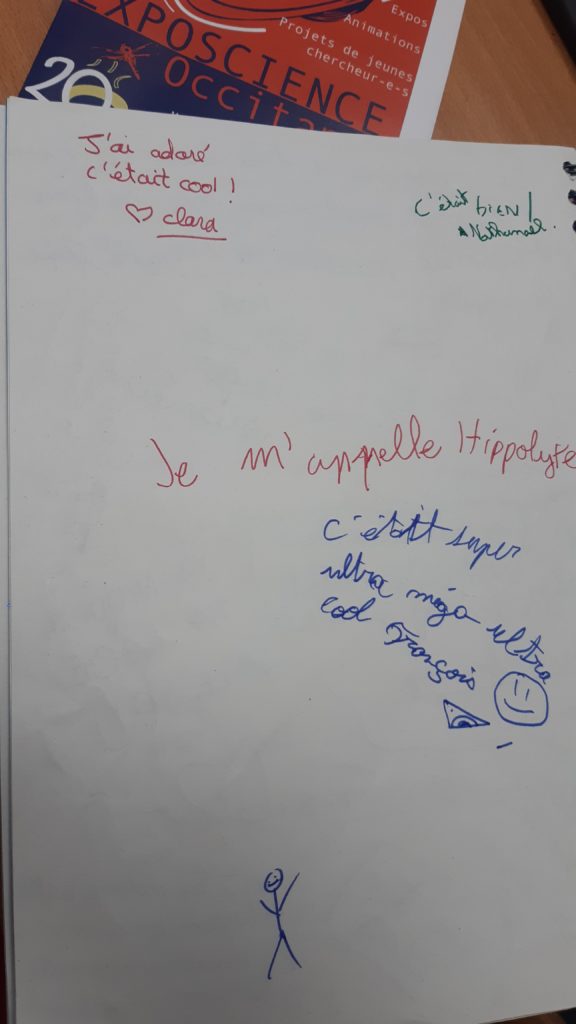 Expos
Animations
Projets de jeunes
chercheur-e-s
EXPOSCIENCE
Occita
20
J'ai adoré
c'était cool !
♡ clara
C'était bIEN !
Nathanael.
Je m'appelle Hippolyte
C'était super
ultra méga ultra
cool François